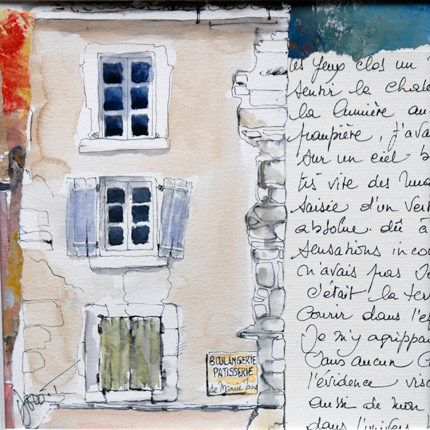 BOULANGERIE
PATISSERIE
de Marie
les yeux clos un
sentir la chale
la lumière au
paupière, j'ava
sur un ciel b
très vite des nua
saisie d'un vert
absolue. dû à
sensations inco
n'avais pas
c'était la terr
courir dans l'es
Je m'y agrippai
Sans aucun
l'évidence visc
aussi de mon
dans l'univers